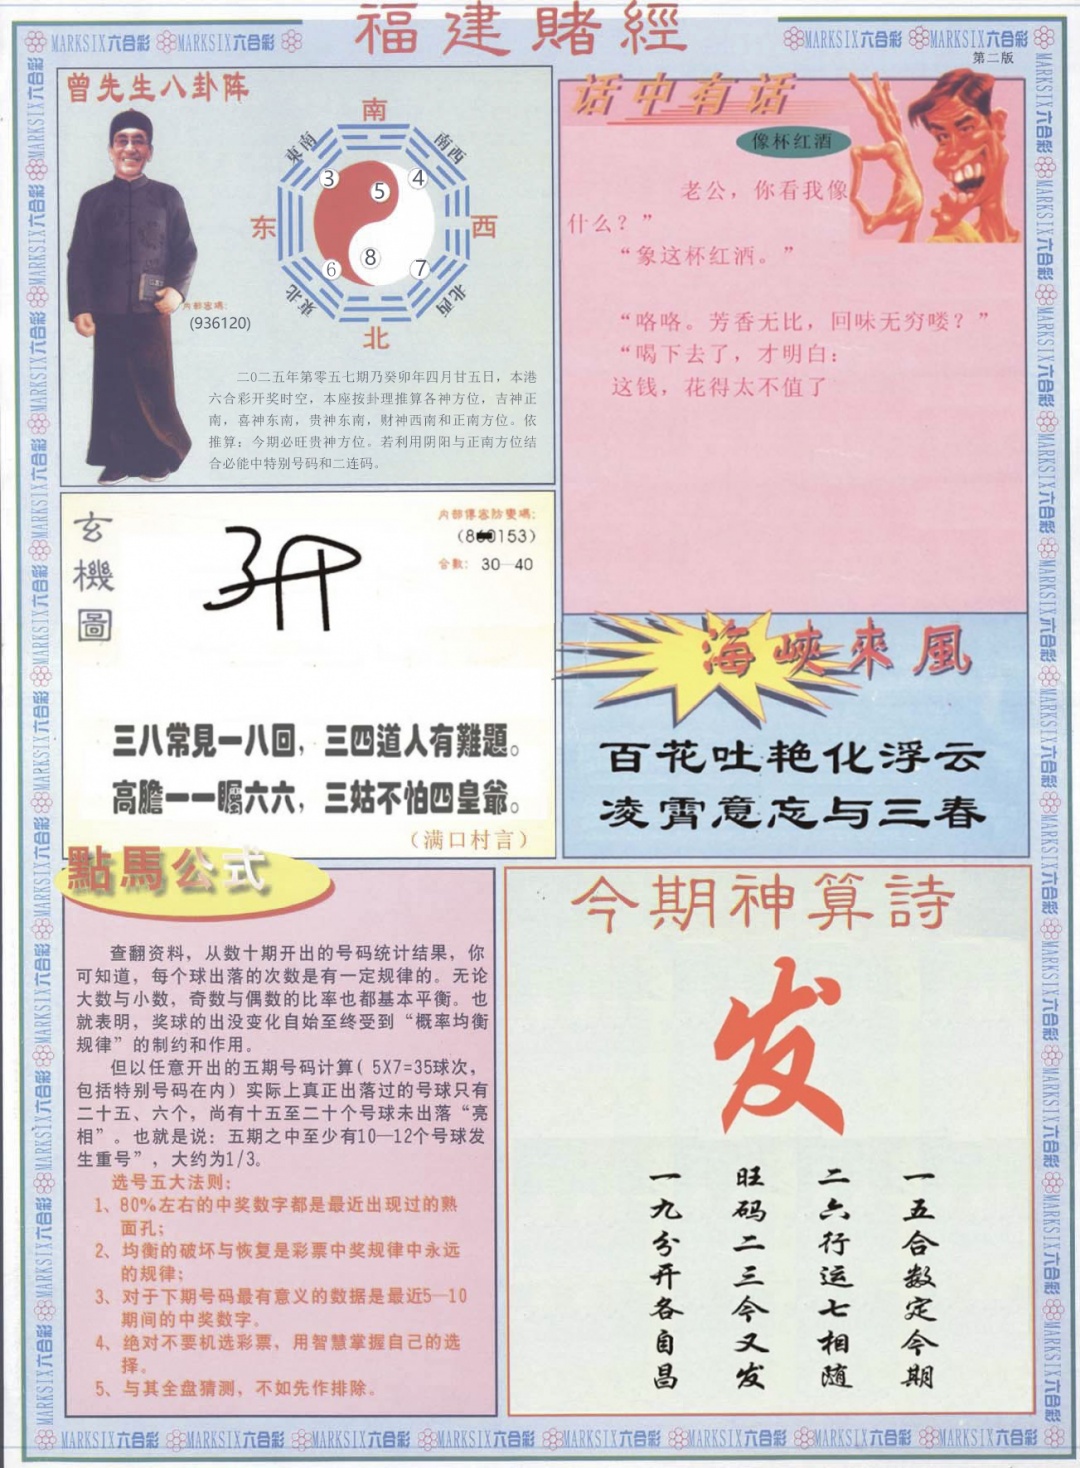 福建賭經
MARKSIX六合彩 MARKSIX六合彩 MARKSIX六合彩 MARKSIX六合彩
第二版
曾先生八卦阵
南
東南 南西
3 5 4
东 西
6 8 7
東北 北西
北
内部密碼:
(936120)
二0二五年第零五七期乃癸卯年四月廿五日，本港
六合彩开奖时空，本座按卦理推算各神方位，吉神正
南，喜神东南，贵神东南，财神西南和正南方位。依
推算：今期必旺贵神方位。若利用阴阳与正南方位结
合必能中特别号码和二连码。
话中有话
像杯红酒
老公，你看我像
什么？”
“象这杯红酒。”
“咯咯。芳香无比，回味无穷喽？”
“喝下去了，才明白：
这钱，花得太不值了
玄機圖
内部傳密防變碼:
(8 0153)
合數: 30—40
三八常見一八回，三四道人有難題。
高膽一一矚六六，三姑不怕四皇爺。
（满口村言）
海峽來風
百花吐艳化浮云
凌霄意忘与三春
點馬公式
查翻资料，从数十期开出的号码统计结果，你
可知道，每个球出落的次数是有一定规律的。无论
大数与小数，奇数与偶数的比率也都基本平衡。也
就表明，奖球的出没变化自始至终受到“概率均衡
规律”的制约和作用。
但以任意开出的五期号码计算( 5X7=35球次，
包括特别号码在内）实际上真正出落过的号球只有
二十五、六个，尚有十五至二十个号球未出落“亮
相”。也就是说：五期之中至少有10—12个号球发
生重号”，大约为1/3。
选号五大法则：
1、80%左右的中奖数字都是最近出现过的熟
面孔；
2、均衡的破坏与恢复是彩票中奖规律中永远
的规律；
3、对于下期号码最有意义的数据是最近5—10
期间的中奖数字。
4、绝对不要机选彩票，用智慧掌握自己的选
择。
5、与其全盘猜测，不如先作排除。
今期神算詩
发
一五合数定今期
二六行运七相随
旺码二三今又发
一九分开各自昌
MARKSIX六合彩 MARKSIX六合彩 MARKSIX六合彩 MARKSIX六合彩 MARKSIX六合彩 MARKSIX六合彩 MARKSIX六合彩 MARKSIX六合彩